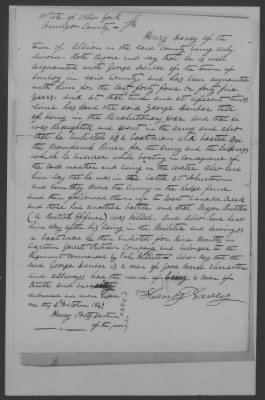 State of New York
County ss
Henry Davey of the
town of Albion in the said County being duly
sworn doth depose and say that he is well
acquainted with George Dunbar of the town of
in said County and has been acquainted
with him for the last forty four or forty five
years and at that time and at different times
since has heard the said George Dunbar tell
of being in the Revolutionary War and that he
was draughted and served in the army and also
that he enlisted as a boatman and boated on
the Mohawk River for the army and the hardships
which he endured while boating in consequence of
the cold weather and being in the water also heard
him say that he was in the battle at Johnstown
and how they drove the enemy in the edge of the
and then followed them up to West Canada Creek
and there had another battle and that Major Butler
(a British officer) was killed. And also have heard
him say after his being in the Militia and serving as
a boatman he then enlisted for Nine Months in
Captain Company and belonged in the
Regiment commanded by Col. Willett. Also say that the
said George Dunbar is a man of good moral character
and always had the name of being a man of
truth and
Subscribed and sworn before
me this October 184
Henry
of the peace
Henry Davey